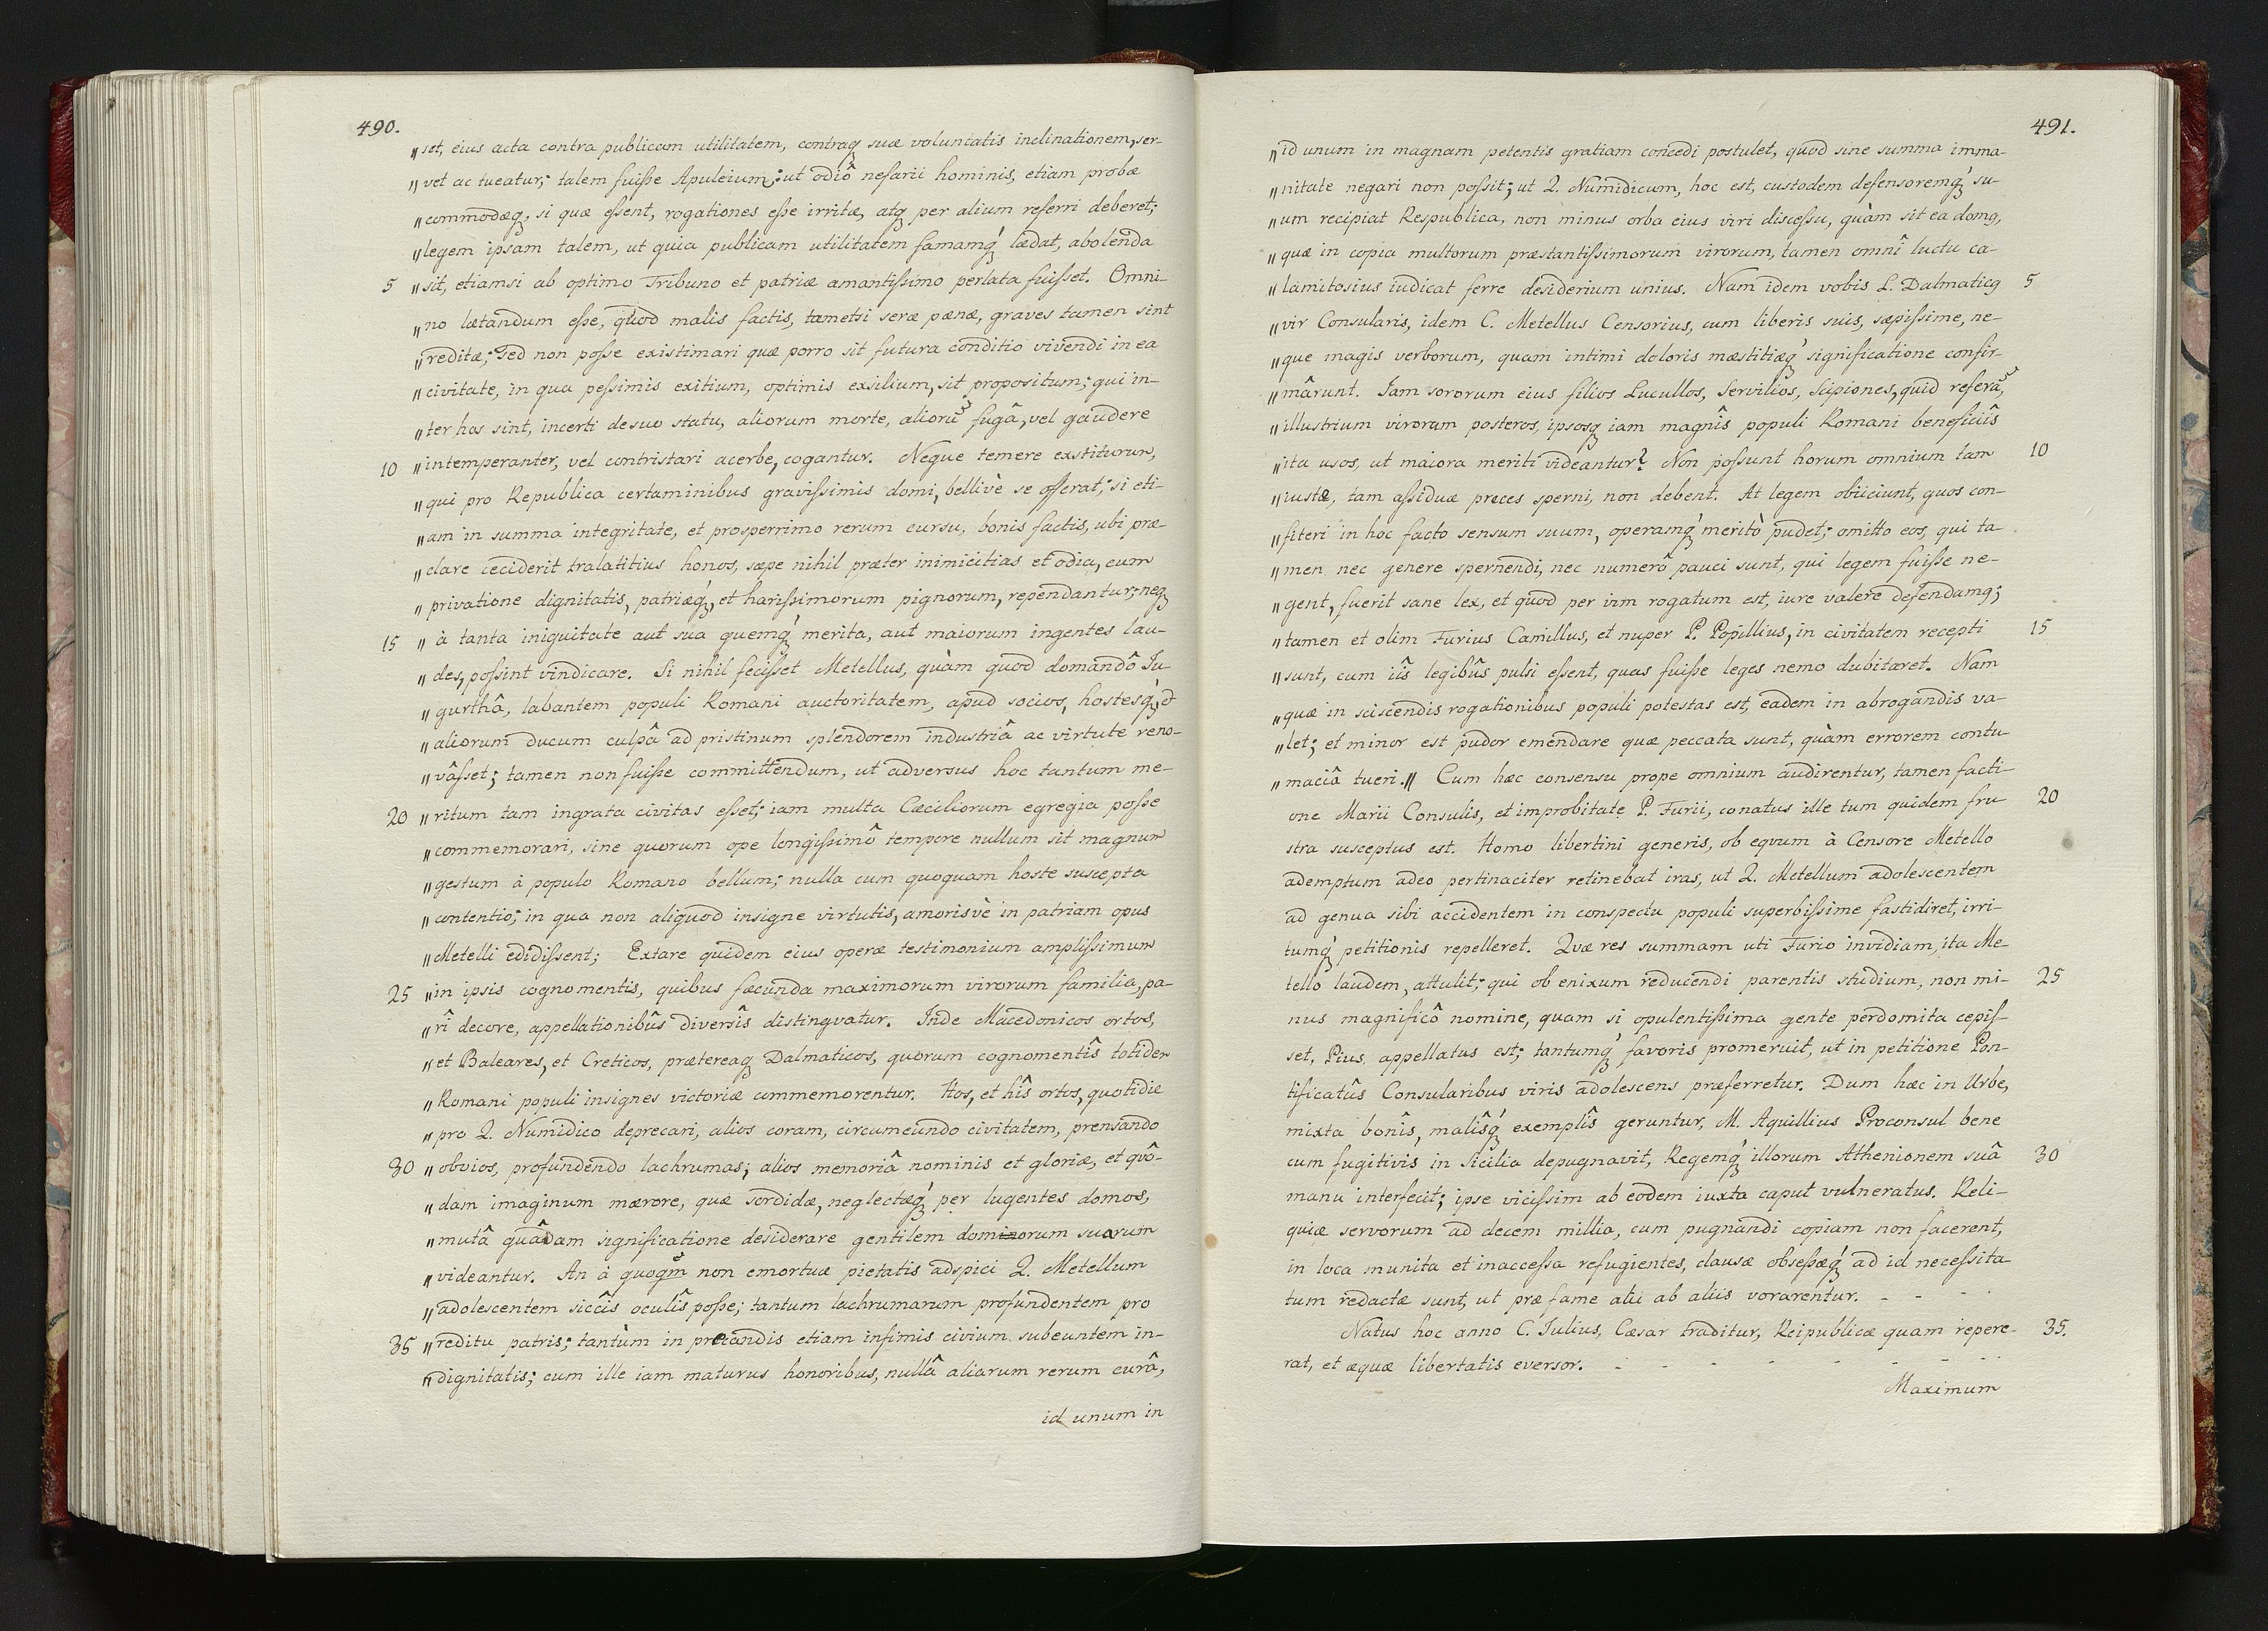 490.
„set, eius acta contra publicam utilitatem, contraq; suæ voluntatis inclinationem, ser-
„vet ac tueatur; talem fuiſse Apuleium: ut odiô nefarii hominis, etiam probæ
„commodæq;, si quæ eſsent, rogationes eſse irritæ, atq; per alium referri deberet;
„legem ipsam talem, ut quia publicam utilitatem famamq́; lædat, abolenda
5 „sit, etiamsi ab optimo Tribuno et patriæ amantiſsimo perlata fuiſset. Omni-
„no lætandum eſse, quod malis factis, tametsi seræ pœnæ, graves tamen sint
„reditæ; sed non poſse existimari quæ porro sit futura conditio vivendi in ea
„civitate, in qua peſsimis exitium, optimis exsilium, sit propositum; qui in-
„ter hos sint, incerti de suo statu, aliorum morte, aliorũ fugâ, vel gaudere
10 „intemperanter, vel contristari acerbe, cogantur. Neque temere exstiturum,
„qui pro Republica certaminibus graviſsimis domi, bellivè se offerat; si eti-
„am in summa integritate, et prosperrimo rerum cursu, bonis factis, ubi præ-
„clare ceciderit tralatitius hônos, sæpe nihil præter inimicitias et odia, cum
„privatione dignitatis, patriæq́;, et hariſsimorum pignorum, rependantur; neq;
15 „à tanta iniquitate aut sua quemq́; merita, aut maiorum ingentes lau-
„des, poſsint vindicare. Si nihil feciſset Metellus, quàm quod domandô Iu-
„gurthâ, labantem populi Romani auctoritatem, apud socios, hostesq́;, et
„aliorum ducum culpâ ad pristinum splendorem industriâ ac virtute reno-
„vâſset; tamen non fuiſse committendum, ut adversus hoc tantum me-
20 „ritum tam ingrata civitas eſset; iam multa Cæciliorum egregia poſse
„commemorari, sine quorum ope longiſsimô tempore nullum sit magnum
„gestum à populo Romano bellum; nulla cum quoquam hoste suscepta
„contentio; in qua non aliquod insigne virtutis, amorisvè in patriam opus
„Metelli edidiſsent; Extare quidem eius operæ testimonium ampliſsimum
25 „in ipsis cognomentis, quibus fæcunda maximorum virorum familia, pa-
„rî decore, appellationibûs diversîs distingvatur. Inde Macedonicos ortos,
„et Baleares, et Creticos, prætereaq; Dalmaticos, quorum cognomentîs totidem
„Romani populi insignes victoriæ commemorentur. Hos, et hîs ortos, quotidie
„pro Q. Numidico deprecari, alios coram, circumeundo civitatem, prensando
30 „obvios, profundendo lachrumas; alios memoriâ nominis et gloriæ, et quô-
„dam imaginum mærore, quæ sordidæ, neglectæq́; per lugentes domos,
„mutâ quâdam significatione desiderare gentilem dominorum suorum
„videantur. An à quoqm̃ non emortuæ pietatis adspici Q. Metellum
„adolescentem siccîs oculîs poſse; tantum lachrumarum profundentem pro
35 „reditu patris; tantùm in precandis etiam infimis civium subeuntem in-
„dignitatis; cum ille iam maturus honoribus, nullâ aliarum rerum curâ,
id unum in
491.
„id unum in magnam petentis gratiam concedi postulet, quod sine summa imma-
„nitate negari non poſsit; ut Q. Numidicum, hoc est, custodem defensoremq́; su-
„um recipiat Respublica, non minus orba eius viri disceſsu, quàm sit ea domq,
„quæ in copia multorum præstantiſsimorum virorum, tamen omnî luctu ca-
„lamitosius iudicat ferre desiderium unius. Nam idem vobis L. Dalmaticq 5
„vir Consularis, idem C. Metellus Censorius, cum liberis suis, sæpiſsime, ne-
„que magis verborum, quam intimi doloris mæstitiæq́; significatione confir-
„mârunt. Iam sororum eius filios Lucullos, Servilios, Scipiones, quid referã,
„illustrium virorum posteros, ipsosq; iam magnîs populi Romani beneficiîs
„ita usos, ut maiora meriti videantur? Non poſsunt horum omnium tam 10
„iustæ, tam aſsiduæ preces sperni, non debent. At legem obiiciunt, quos con-
„fiteri in hoc facto sensum suum, operamq́; meritò pudet; omitto eos, qui ta-
„men nec genere spernendi, nec numerô pauci sunt, qui legem fuiſse ne-
„gent, fuerit sane lex, et quod per vim rogatum est, iure valere defendamq;
„tamen et olim Furius Camillus, et nuper P. Popillius, in civitatem recepti 15
„sunt, cum iîs legibûs pulsi eſsent, quas fuiſse leges nemo dubitaret. Nam
„quæ in sciscendis rogationibus populi potestas est, eadem in abrogandis va-
„let; et minor est pudor emendare quæ peccata sunt, quàm errorem contu-
„maciâ tueri.„ Cum hæc consensu prope omnium audirentur, tamen facti-
one Marii Consulis, et improbitate P. Furii, conatus ille tum quidem fru- 20
stra susceptus est. Homo libertini generis, ob eqvum à Censore Metello
ademptum adeo pertinaciter retinebat iras, ut Q. Metellum adolescentem
ad genua sibi accidentem in conspectu populi superbiſsime fastidiret, irri-
tumq́; petitionis repelleret. Qvæ res summam uti Furio invidiam, ita Me-
tello laudem, attulit; qui ob enixum reducendi parentis studium, non mi- 25
nus magnificô nomine, quam si opulentiſsima gente perdomita cepiſ-
set, Pius appellatus est; tantumq́; favoris promeruit, ut in petitione Pon-
tificatûs Consularibus viris adolescens præferretur. Dum hæc in Urbe,
mixta bonîs, malîsq́; exemplîs geruntur, M. Aquillius Proconsul bene
cum fugitivis in Sicilia depugnavit, Regemq́; illorum Athenionem suâ 30
manu interfecit; ipse viciſsim ab eodem iuxta caput vulneratus. Reli-
quiæ servorum ad decem millia, cum pugnandi copiam non facerent,
in loca munita et inacceſsa refugientes, clausæ obseſsæq́; ad id neceſsita-
tum redactæ sunt, ut præ fame alii ab aliis vorarentur. - - - -
Natus hoc anno C. Iulius, Cæsar traditur, Reipublicæ quam repere- 35.
rat, et æquæ libertatis eversor. - - - - - - - -
Maximum